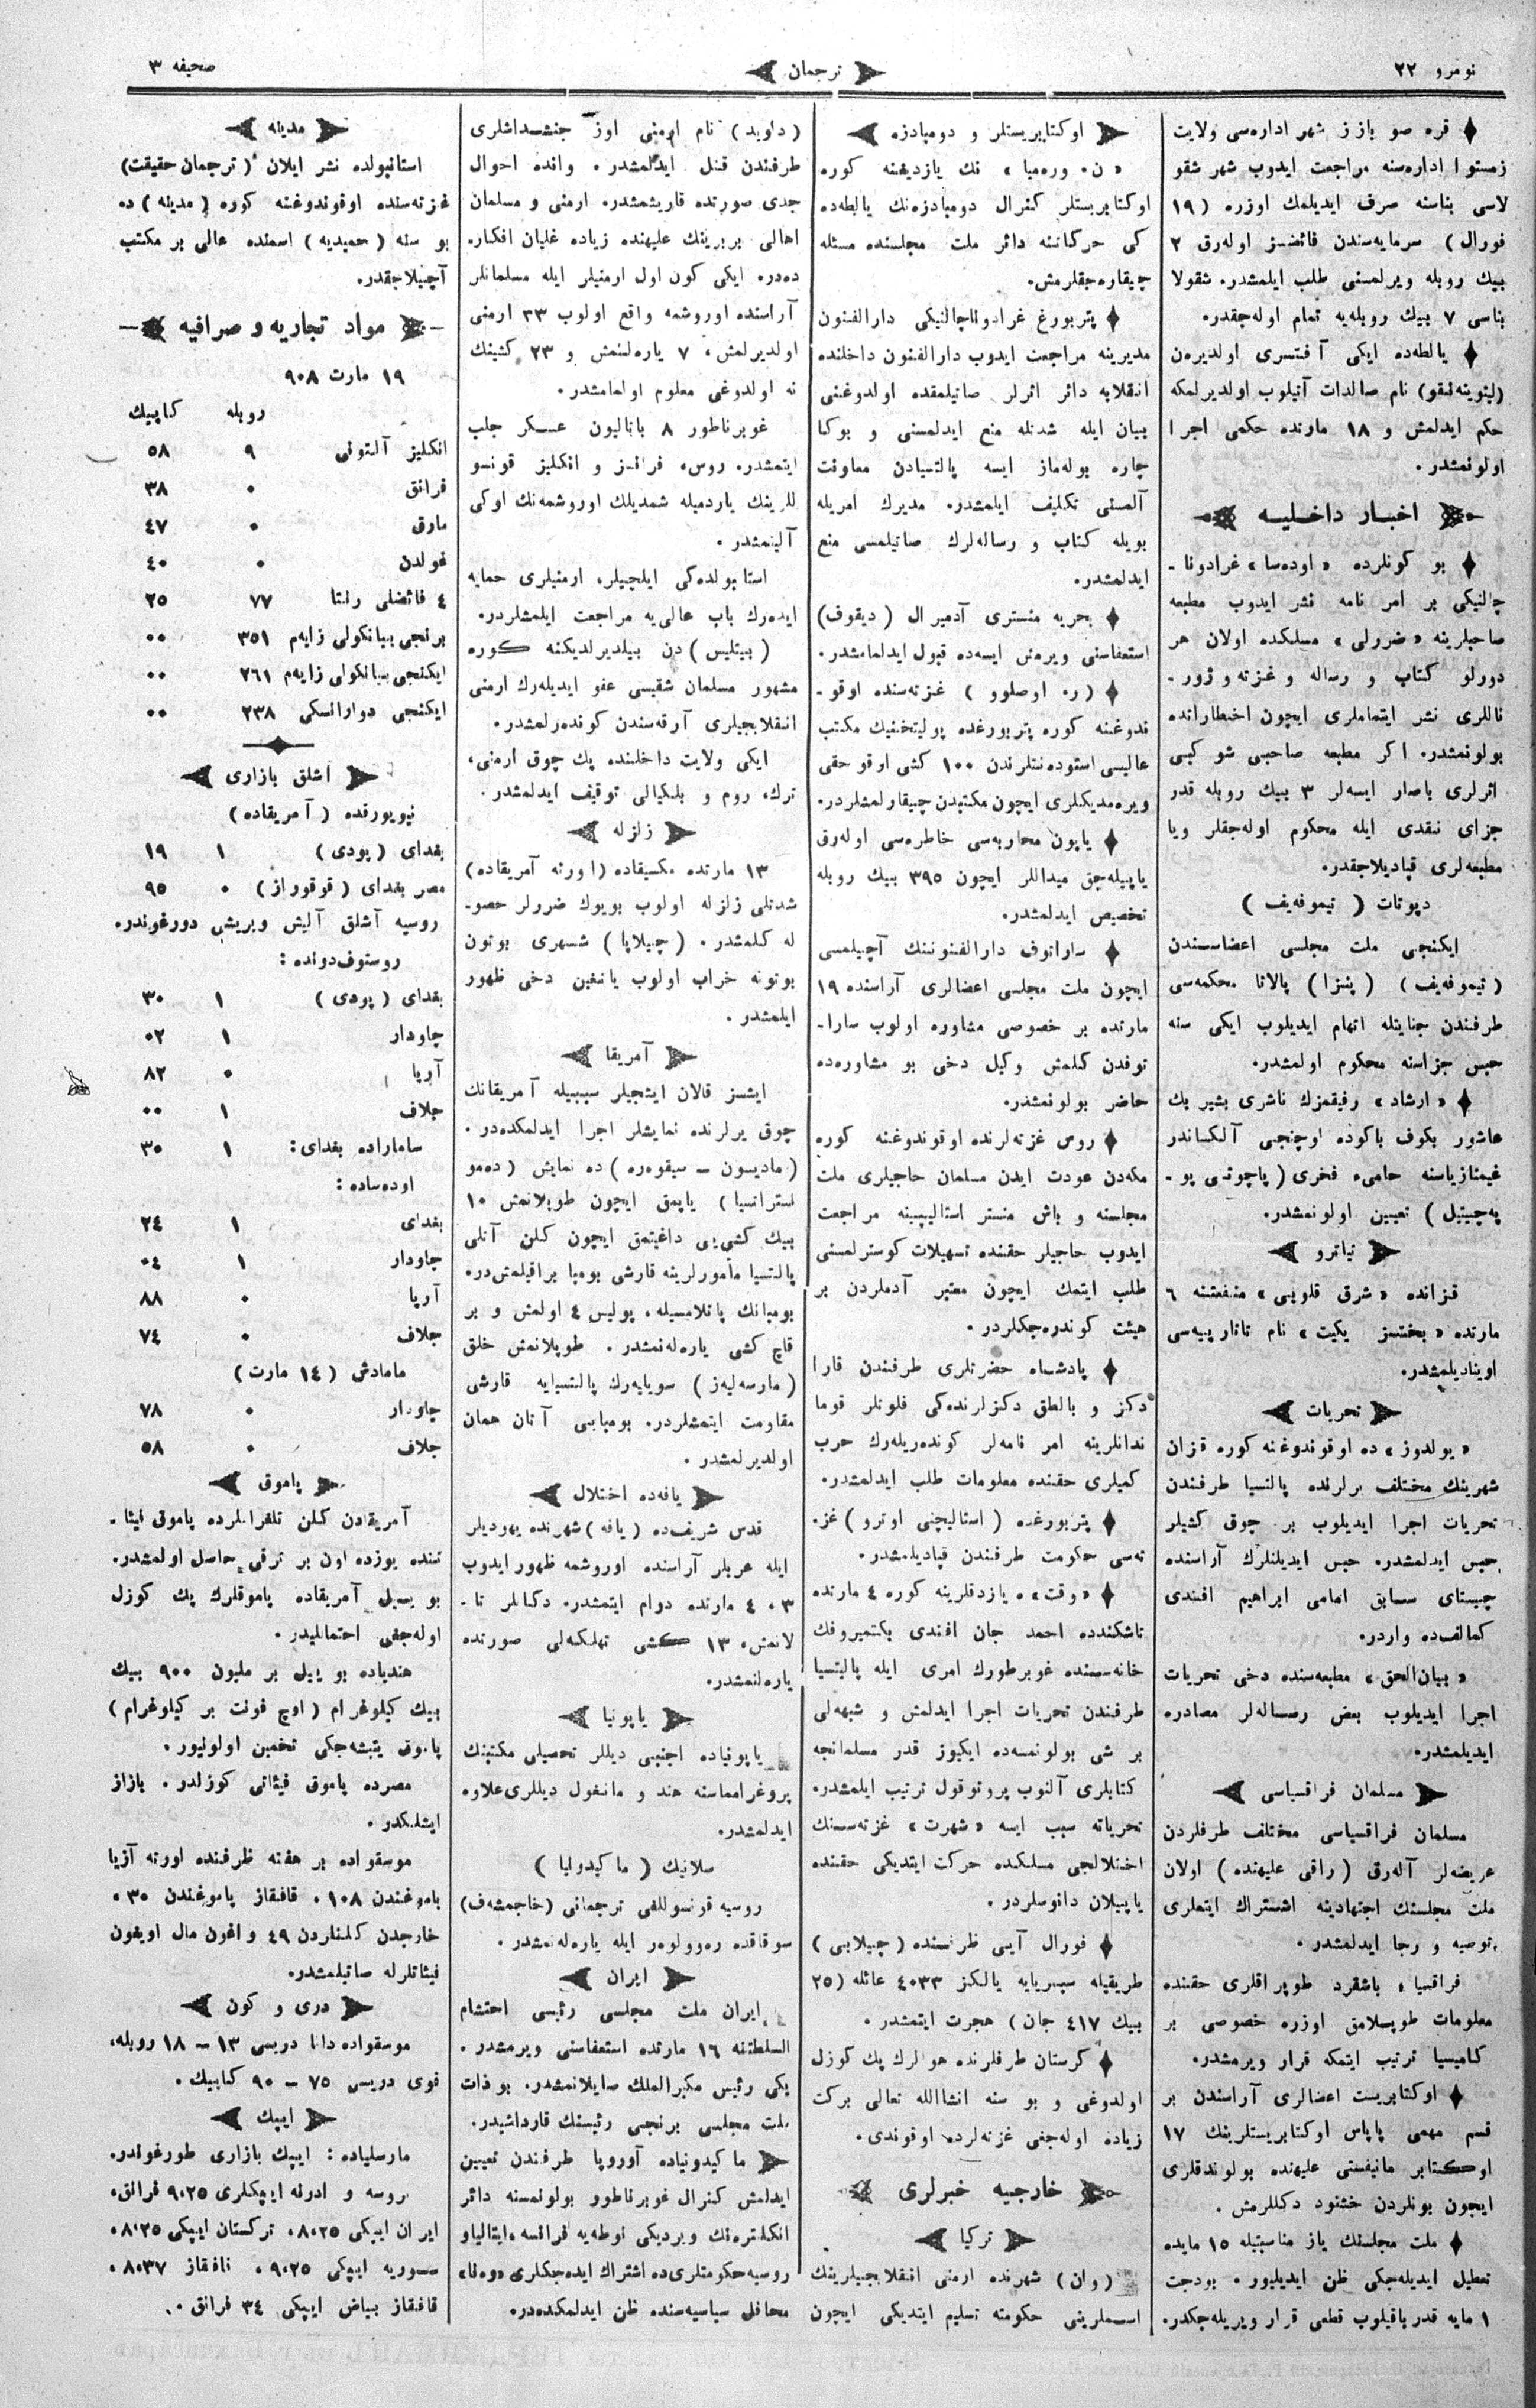 نومرو ٢٢
ترجمان
صحيفه ٣
قره صو بازز شهر اداره‌سی ولايت
زمستوا اداره‌سنه مراجعت ايدوب شهر شقو
لاسی بناسنه صرف ايديلمك اوزره (١٩
فورال) سرمايه‌سندن فائضسز اوله‌رق ٢
بيك روبله ويرلمسنی طلب ايلمشدر. شقولا
بناسی ٧ بيك روبله‌يه تمام اوله‌جقدر.
يالطه‌ده ايكی آفتسری اولديرەن
(ليتوينه‌نقو) نام صالدات آتيلوب اولديرلمكه
حكم ايدلمش و ١٨ مارتده حكمی اجرا
اولونمشدر.
اخبار داخليه
بو كونلرده «اوده‌سا» غرادونا-
چالنيكی بر امر نامه نشر ايدوب مطبعه
صاحبلرينه «ضررلی» مسلكده اولان هر
دورلو كتاب و رساله و غزته و ژور-
ناللری نشر ايتماملری ايچون اخطاراتده
بولونمشدر. اكر مطبعه صاحبی شو كبی
اثرلری باصار ايسه‌لر ٣ بيك روبله قدر
جزای نقدی ايله محكوم اوله‌جقلر ويا
مطبعه‌لری قپاديلاجقدر.
دپوتات (تيموفه‌يف)
ايكنجی ملت مجلسی اعضاسندن
(تيموفه‌يف) (پنزا) پالاتا محكمه‌سی
طرفندن جنايتله اتهام ايديلوب ايكی سنه
حبس جزاسنه محكوم اولمشدر.
«ارشاد» رفيقمزك ناشری بشير بك
عاشور بكوف باكوده اوچنجی آلكساندر
غيمنازياسنه حامیء فخری (پاچوتنی پو-
په‌چيتيل) تعيين اولونمشدر.
تياترو
قزانده «شرق قلوبی» منفعتنه ٦
مارتده «بختسز يكيت» نام تاتار پيه‌سی
اويناديلمشدر.
تحريات
«يولدوز» ده اوقوندوغنه كوره قزان
شهرينك مختلف يرلرنده پالتسيا طرفندن
تحريات اجرا ايديلوب بر چوق كشيلر
حبس ايدلمشدر. حبس ايديلنلرك آراسنده
چيستای سابق امامی ابراهيم افندی
كمالف‌ده واردر.
«بيان‌الحق» مطبعه‌سنده دخی تحريات
اجرا ايديلوب بعض رساله‌لر مصادره
ايديلمشدر.
مسلمان فراقسياسی
مسلمان فراقسياسی مختلف طرفلردن
عريضه‌لر آله‌رق (راقی عليهنده) اولان
ملت مجلسنك اجتهادينه اشتراك ايتملری
توصيه و رجا ايدلمشدر.
فراقسيا، باشقرد طوپراقلری حقنده
معلومات طوپلامق اوزره خصوصی بر
كاميسيا ترتيب ايتمكه قرار ويرمشدر.
اوكتابريست اعضالری آراسندن بر
قسم مهمی پاپاس اوكتابريستلرينك ١٧
اوكتابر مانيفستی عليهنده بولوندقلری
ايچون بونلردن خشنود دكللرمش.
ملت مجلسنك ياز مناسبتيله ١٥ مايده
تعطيل ايديله‌جكی ظن ايديليور. بودجت
١ مايه قدر باقيلوب قطعی قرار ويريله‌جكدر.
اوكتابريستلر و دومبادزه
«ن. وره‌ميا» نك يازديغنه كوره
اوكتابريستلر كنرال دومبادزه‌نك يالطه‌ده
كی حركاتنه دائر ملت مجلسنده مسئله
چيقاره‌جقلرمش.
پتربورغ غرادوناچالنيكی دارالفنون
مديرينه مراجعت ايدوب دارالفنون داخلنده
انقلابه دائر اثرلر صاتيلمقده اولدوغنی
بيان ايله شدتله منع ايدلمسنی و بوكا
چاره بوله‌ماز ايسه پالتسيادن معاونت
آلمسنی تكليف ايلمشدر. مديرك امريله
بويله كتاب و رساله‌لرك صاتيلمسی منع
ايدلمشدر.
بحريه منستری آدميرال (ديقوف)
استعفاسنی ويرمش ايسه‌ده قبول ايدلمامشدر.
(ر. اوصلوو) غزته‌سنده اوقو-
ندوغنه كوره پتربورغده پوليتخنيك مكتب
عاليسی استوده‌نتلرندن ١٠٠ كشی اوقو حقی
ويره‌مديكلری ايچون مكتبدن چيقارلمشلردر.
ياپون محاربه‌سی خاطره‌سی اوله‌رق
ياپيله‌جق ميداللر ايچون ٣٩٥ بيك روبله
تخصيص ايدلمشدر.
ساراتوف دارالفنوننك آچيلمسی
ايچون ملت مجلسی اعضالری آراسنده ١٩
مارتده بر خصوصی مشاوره اولوب سارا-
توفدن كلمش وكيل دخی بو مشاوره‌ده
حاضر بولونمشدر.
روس غزته‌لرنده اوقوندوغنه كوره
مكه‌دن عودت ايدن مسلمان حاجيلری ملت
مجلسنه و باش منستر استاليپينه مراجعت
ايدوب حاجيلر حقنده تسهيلات كوسترلمسنی
طلب ايتمك ايچون معتبر آدملردن بر
هيئت كوندره‌جكلردر.
پادشاه حضرتلری طرفندن قارا
دكز و بالطق دكزلرنده‌كی فلوتلر قوما
ندانلرينه امر نامه‌لر كونده‌ريله‌رك حرب
كميلری حقنده معلومات طلب ايدلمشدر.
پتربورغده (استاليچنی اوترو) غز.
ته‌سی حكومت طرفندن قپاديلمشدر.
«وقت» ه يازدقلرينه كوره ٤ مارتده
تاشكندده احمد جان افندی بكتميروفك
خانه‌سنده غوبرطورك امری ايله پاليتسيا
طرفندن تحريات اجرا ايدلمش و شبهه‌لی
بر شی بولونمسه‌ده ايكيوز قدر مسلمانجه
كتابلری آلنوب پروتوقول ترتيب ايلمشدر.
تحرياته سبب ايسه «شهرت» غزته‌سنك
اختلالجی مسلكده حركت ايتديكی حقنده
ياپيلان دانوسلردر.
فورال آيی ظرفنده (چيلابی)
طريقيله سيبريايه يالكز ٤٠٣٣ عائله (٢٥
بيك ٤١٧ جان) هجرت ايتمشدر.
كرستان طرفلرنده هوالرك پك كوزل
اولدوغی و بو سنه انشاالله تعالی بركت
زياده اوله‌جغی غزته‌لرده اوقوندی.
خارجيه خبرلری
تركيا
(وان) شهرنده ارمنی انقلابجيلرينك
اسملرينی حكومته تسليم ايتديكی ايچون
(داويد) نام ارمنی اوز جنسداشلری
طرفندن قتل ايدلمشدر. وانده احوال
جدی صورتده قاريشمشدر. ارمنی و مسلمان
اهالی بربرينك عليهنده زياده غليان افكار.
ده‌در. ايكی كون اول ارمنيلر ايله مسلمانلر
آراسنده اوروشمه واقع اولوب ٣٣ ارمنی
اولديرلمش، ٧ ياره‌لنمش و ٢٣ كشينك
نه اولدوغی معلوم اولمامشدر.
غوبرناطور ٨ باتاليون عسكر جلب
ايتمشدر. روس، فرانسز و انكليز قونسو
للرينك يارديمله شمديلك اوروشمه‌نك اوكی
آلينمشدر.
استابولده‌كی ايلچيلر، ارمنيلری حمايه
ايده‌رك باب عالی‌يه مراجعت ايلمشلردر.
(بيتليس) دن بيلديرلديكنه كوره
مشهور مسلمان شقيسی عفو ايديله‌رك ارمنی
انقلابجيلری آرقه‌سندن كونده‌رلمشدر.
ايكی ولايت داخلنده پك چوق ارمنی،
ترك، روم و بلغيالی توقيف ايدلمشدر.
زلزله
١٣ مارتده مكسيقاده (اورته آمريقاده)
شدتلی زلزله اولوب بويوك ضررلر حصو-
له كلمشدر. (چيلاپا) شهری بوتون
بوتونه خراب اولوب يانغين دخی ظهور
ايلمشدر.
آمريقا
ايشسز قالان ايشجيلر سببيله آمريقانك
چوق يرلرنده نمايشلر اجرا ايدلمكده‌در.
(ماديسون - سيقوه‌ره) ده نمايش (ده‌مو
نستراتسيا) ياپمق ايچون طوپلانمش ١٠
بيك كشی‌يی داغيتمق ايچون كلن آتلی
پالتسيا مأمورلرينه قارشی بومبا براقيلمش‌در.
بومبانك پاتلامسيله، پوليس ٤ اولمش و بر
قاچ كشی ياره‌له‌نمشدر. طوپلانمش خلق
(مارسه‌ليه‌ز) سويليه‌رك پالتسيايه قارشی
مقاومت ايتمشلردر. بومبايی آتان همان
اولديرلمشدر.
يافه‌ده اختلال
قدس شريف‌ده (يافه) شهرنده يهوديلر
ايله عربلر آراسنده اوروشمه ظهور ايدوب
٣، ٤ مارتده دوام ايتمشدر. دكانلر تا-
لانمش، ١٣ كشی تهلكه‌لی صورتده
ياره‌لنمشدر.
ياپونيا
ياپونياده اجنبی ديللر تحصيلی مكتبنك
پروغرامماسنه هند و مانغول ديللری علاوه
ايدلمشدر.
سلانيك (ماكيدونيا)
روسيه قونسوللغی ترجمانی (خاجمشه‌ف)
سوقاقده ره‌وولوه‌ر ايله ياره‌له‌نمشدر.
ايران
ايران ملت مجلسی رئيسی احتشام
السلطنه ١٦ مارتده استعفاسنی ويرمشدر.
يكی رئيس مكبرالملك صايلانمشدر. بو ذات
ملت مجلسی برنجی رئيسنك قارداشيدر.
ماكيدونياده آوروپا طرفندن تعيين
ايدلمش كنرال غوبرناطور بولونمسنه دائر
انكلتره‌نك ويرديكی نوطه‌يه فرانسه، ايتاليا و
روسيه حكومتلری‌ده اشتراك ايده‌جكلری «وه‌نا»
محافل سياسيه‌سنده ظن ايدلمكده‌در.
مدينه
استانبولده نشر ايلان (ترجمان حقيقت)
غزته‌سنده اوقوندوغنه كوره (مدينه) ده
بو سنه (حميديه) اسمنده عالی بر مكتب
آچيلاجقدر.
مواد تجاريه و صرافيه
١٩ مارت ٩٠٨
روبله كاپيك
انكليز آلتونی ٩ ٥٨
فرانق ٠ ٣٨
مارق ٠ ٤٧
غولدن ٠ ٤٠
٤ فائضلی رانتا ٧٧ ٢٥
برنجی بيانكولی زايه‌م ٣٥١ ٠٠
ايكنجی بيانكولی زايه‌م ٢٦١ ٠٠
ايكنجی دوارانسكی ٢٣٨ ٠٠
اشلق بازاری
نيويورقده (آمريقاده)
بغدای (پودی) ١ ١٩
مصر بغدای (قوقوراز) ٠ ٩٥
روسيه آشلق آليش ويريشی دورغوندر.
روستوف‌دونده:
بغدای (پودی) ١ ٣٠
چاودار ١ ٠٢
آرپا ٠ ٨٢
جلاف ١ ٠٠
ساماراده بغدای: ١ ٣٠
اوده‌ساده:
بغدای ١ ٢٤
چاودار ١ ٠٤
آرپا ٠ ٨٨
جلاف ٠ ٧٤
مامادش (١٤ مارت)
چاودار ٠ ٧٨
جلاف ٠ ٥٨
پاموق
آمريقادن كلن تلغرافلرده پاموق فيئا-
تنده يوزده اون بر ترقی حاصل اولمشدر.
بو ييل آمريقاده پاموقلرك پك كوزل
اوله‌جغی احتمالليدر.
هندياده بو ييل بر مليون ٩٠٠ بيك
بيك كيلوغرام (اوچ فونت بر كيلوغرام)
پاموق يتيشه‌جكی تخمين اولوليور.
مصرده پاموق فيئاتی كوزلدو. بازار
ايشلكدر.
موسقواده بر هفته ظرفنده اورته آزيا
پاموغندن ١٠٨، قافقاز پاموغندن ٣٠،
خارجدن كلنلردن ٤٩ واغون مال اويغون
فيئاتلرله صاتيلمشدر.
دری و كون
موسقواده دانا دريسی ١٣ - ١٨ روبله،
قوی دريسی ٧٥ - ٩٠ كاپيك.
ايپك
مارسلياده: ايپك بازاری طورغوندر.
بروسه و ادرنه ايپكلری ٩،٢٥ فرانق،
ايران ايپكی ٨،٢٥، تركستان ايپكی ٨،٢٥،
سوريه ايپكی ٩،٢٥، قافقاز ٨،٣٧،
قافقاز بياض ايپكی ٣٤ فرانق.